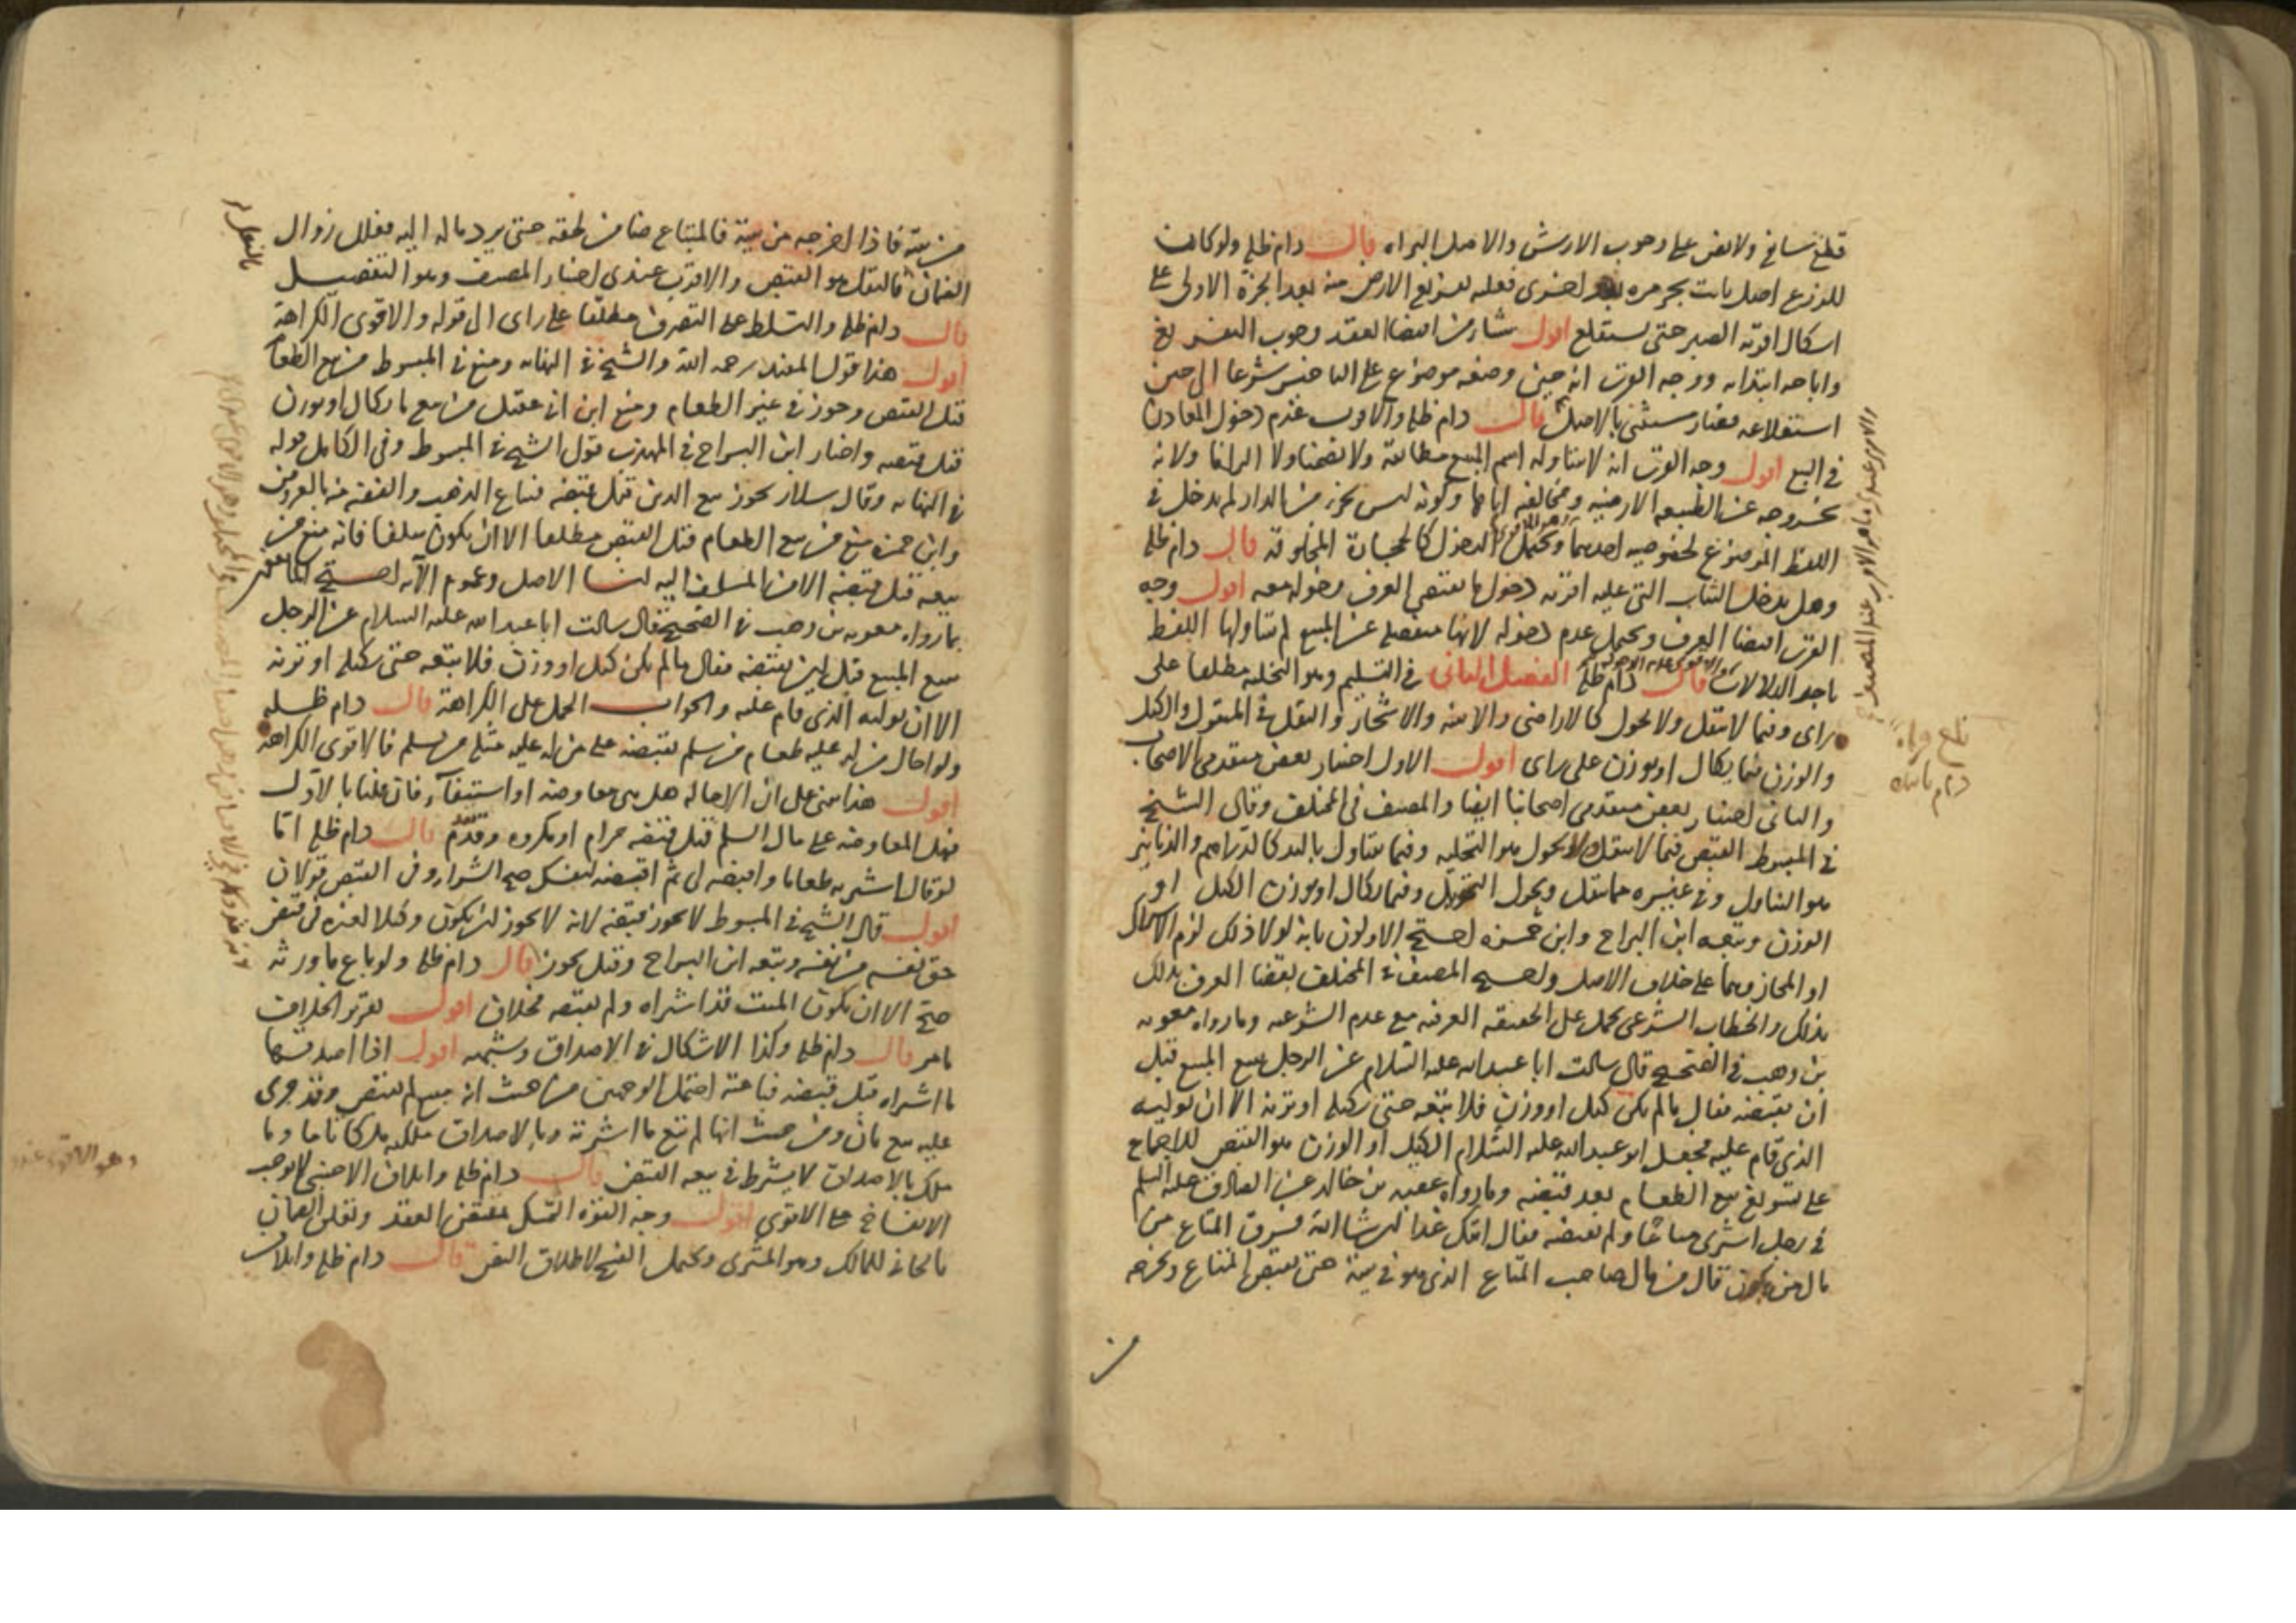 قلع سائغ ولا نص على وجوب الارش والاصل البراه قال دام ظله ولو كان
للزرع اصل ثابت بجز مره بعد اخرى فعليه تفريغ الارض منه بعد الجزة الاولى على
اشكال اقربه الصبر حتى يستقلع اقول ينشا من اقتضا العقد وجوب التفريغ
واباحه ابتدائه ووجه القرب انه حين وضعه موضوع على البا حق شرعا الى حين
استقلاعه فصار مستثنى بالاصل قال دام ظله والاقرب عدم دخول المعادن
في البيع اقول وجه القرب انه لا يتناوله اسم المبيع مطابقة ولا تضمنا ولا التزاما ولانه
بخروجه عن الطبيعه الارضيه ومخالفته اياها وكونه ليس بجزء من الدار لم يدخل في
اللفظ الموضوع لخصوصيه احديهما ويحتمل الدخول كالحجارة المخلوقة قال دام ظله
وهل يدخل الثياب التي عليه اقربه دخول ما يقتضي العرف دخوله معه اقول وجه
القرب اقتضا العرف ويحتمل عدم دخوله لانها منفصله عن المبيع لم يتناولها اللفظ
باحد الدلالات قال دام ظله الفصل الثاني في التسليم وهو التخليه مطلقا على
راى وفيما لا ينقل ولا يحول كالاراضى والابنيه والاشجار والنقل في المنقول والكيل
والوزن فيما يكال او يوزن على راى اقول الاول اختيار بعض متقدمى الاصحاب
والثانى اختيار بعض متقدمى اصحابنا ايضا والمصنف في المختلف وقال الشيخ
في المبسوط القبض فيما لا ينقل ولا يحول هو التخليه وفيما يتناول باليد كالدراهم والدنانير
هو التناول وفي غيره مما ينقل ويحول التحويل وفيما يكال او يوزن الكيل او
الوزن وتبعه ابن البراج وابن حمزه احتج الاولون بانه لولا ذلك لزم الاشتراك
او المجاز وهما على خلاف الاصل واحتج المصنف في المختلف بقضا العرف بذلك
بذلك والخطاب الشرعى يحمل على الحقيقه العرفيه مع عدم الشرعيه وما رواه معويه
بن وهب في الصحيح قال سالت ابا عبد الله عليه السلام عن الرجل يبيع المبيع قبل
ان يقبضه فقال ما لم يكن كيل او وزن فلا يبعه حتى يكيله او يزنه الا ان يوليه
الذى قام عليه فجعل ابو عبد الله عليه السلام الكيل او الوزن هو القبض للاجماع
على تسويغ بيع الطعام بعد قبضه وما رواه عقبه بن خالد عن الصادق عليه السلم
في رجل اشترى متاعا ولم يقبضه فقال اتيك غدا ان شا الله فسرق المتاع من
مال من يكون قال من مال صاحب المتاع الذى هو في بيته حتى يقبض المتاع ويخرجه
من
من بيته فاذا اخرجه من بيته فالمبتاع ضامن لحقه حتى يرد ماله اليه فعلل زوال
الضمان بالنقل هو القبض والاقرب عندى اختيار المصنف وهو التفصيل
قال دام ظله والتسلط على التصرف مطلقا على راى الى قوله والاقوى الكراهة
اقول هذا قول المفيد رحمه الله والشيخ في النهايه ومنع في المبسوط من بيع الطعام
قبل القبض وجوز في غير الطعام ومنع ابن ابى عقيل من بيع ما يكال او يوزن
قبل قبضه واختار ابن البراج في المهذب قول الشيخ في المبسوط وفي الكامل قوله
في النهايه وقال سلار يجوز بيع الدين قبل قبضه فيباع الذهب والفضه منه بالعروض
وابن حمزه منع من بيع الطعام قبل القبض مطلقا الا ان يكون سلفا فانه منع من
بيعه قبل قبضه الا من المسلف اليه لنا الاصل وعموم الآيه احتج المانعون
بما رواه معويه بن وهب في الصحيح قال سالت ابا عبد الله عليه السلام عن الرجل
يبيع المبيع قبل ان يقبضه فقال ما لم يكن كيل او وزن فلا يبعه حتى يكيله او يزنه
الا ان يوليه الذى قام عليه والجواب الحمل على الكراهة قال دام ظله
ولو احال من له عليه طعام من سلم بقبضه على من له عليه مثله من سلم فالاقوى الكراهه
اقول هذا مبنى على ان الاحاله هل هى معاوضه او استيفآء فان قلنا بالاول
فهل المعاوضه على مال السلم قبل قبضه حرام او مكروه وقد تقدم قال دام ظله اما
لو قال اشتر به طعاما واقبضه لى ثم اقبضه لنفسك صح الشراء وفى القبض قولان
اقول قال الشيخ في المبسوط لا يجوز قبضه لانه لا يجوز ان يكون وكيلا لغيره في قبض
حق نفسه من نفسه وتبعه ابن البراج وقيل يجوز قال دام ظله ولو باع ما ورثه
صح الا ان يكون الميت قد اشتراه ولم يقبضه فخلاف اقول تقرير الخلاف
ما مر قال دام ظله وكذا الاشكال في الاصداق وشبهه اقول اذا اصدقها
ما اشتراه قبل قبضه فباعته احتمل الوجهين من حيث انه مبيع لم يقبض وقد جرى
عليه بيع ثان ومن حيث انها لم تبع ما اشترته وبالاصداق ملكته ملكا تاما وما
ملك بالاصداق لا يشترط في بيعه القبض قال دام ظله واتلاف الاجنبى لا يوجب
الانفساخ على الاقوى اقول وجه القوه التمسك بمقتضى العقد وتعلق الضمان
بالجانى للمالك وهو المشترى ويحتمل الفسخ لاطلاق النص قال دام ظله واتلاف